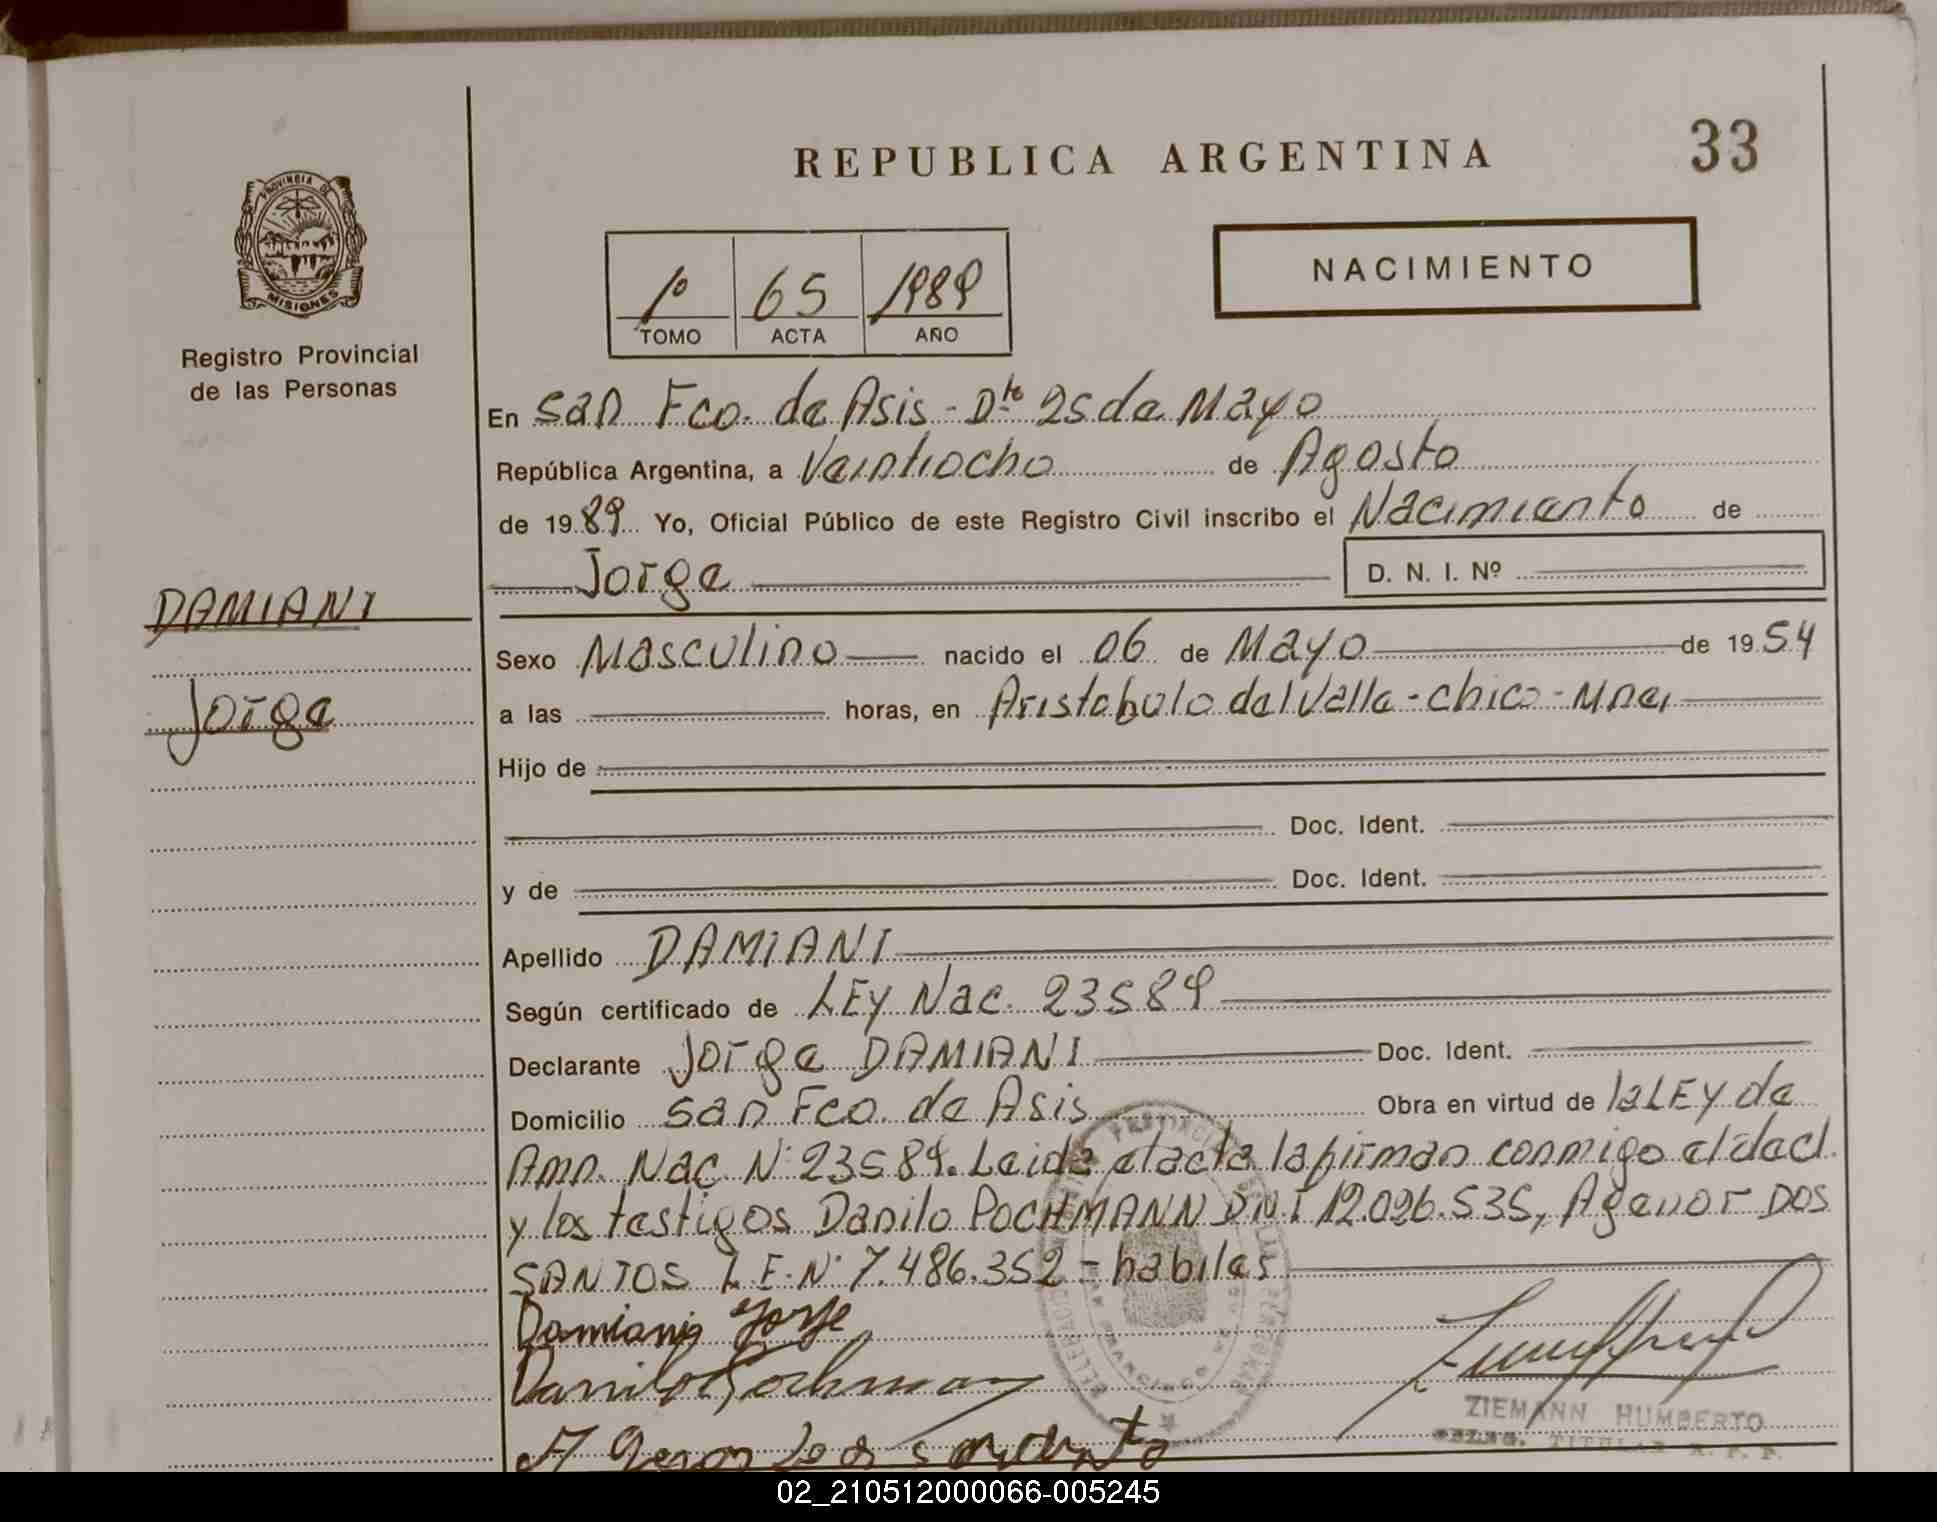 REPUBLICA ARGENTINA
33
PROVINCIA DE
MISIONES
Registro Provincial
de las Personas
1º 65 1989
TOMO ACTA AÑO
NACIMIENTO
En San Fco. de Asis - Dto 25 de Mayo
República Argentina, a Veintiocho de Agosto
de 1989 Yo, Oficial Público de este Registro Civil inscribo el Nacimiento de
Jorge D. N. I. Nº
DAMIANI
Jorge
Sexo Masculino nacido el 06 de Mayo de 1954
a las horas, en Aristobulo del Valle - chico - Mnes
Hijo de
Doc. Ident.
y de Doc. Ident.
Apellido DAMIANI
Según certificado de LEY Nac. 23589
Declarante Jorge DAMIANI Doc. Ident.
Domicilio San Fco. de Asis Obra en virtud de la LEY de
Amn. Nac. Nº 23589. Leida el acta la firman conmigo el decl.
y los testigos Danilo POCHMANN DNI 12.026.535, Agenor DOS
SANTOS L.E. Nº 7.486.352 - habiles
Damiani Jorge
Danilo Pochmann
ZIEMANN HUMBERTO
TITULAR R. P. P.
02_210512000066-005245